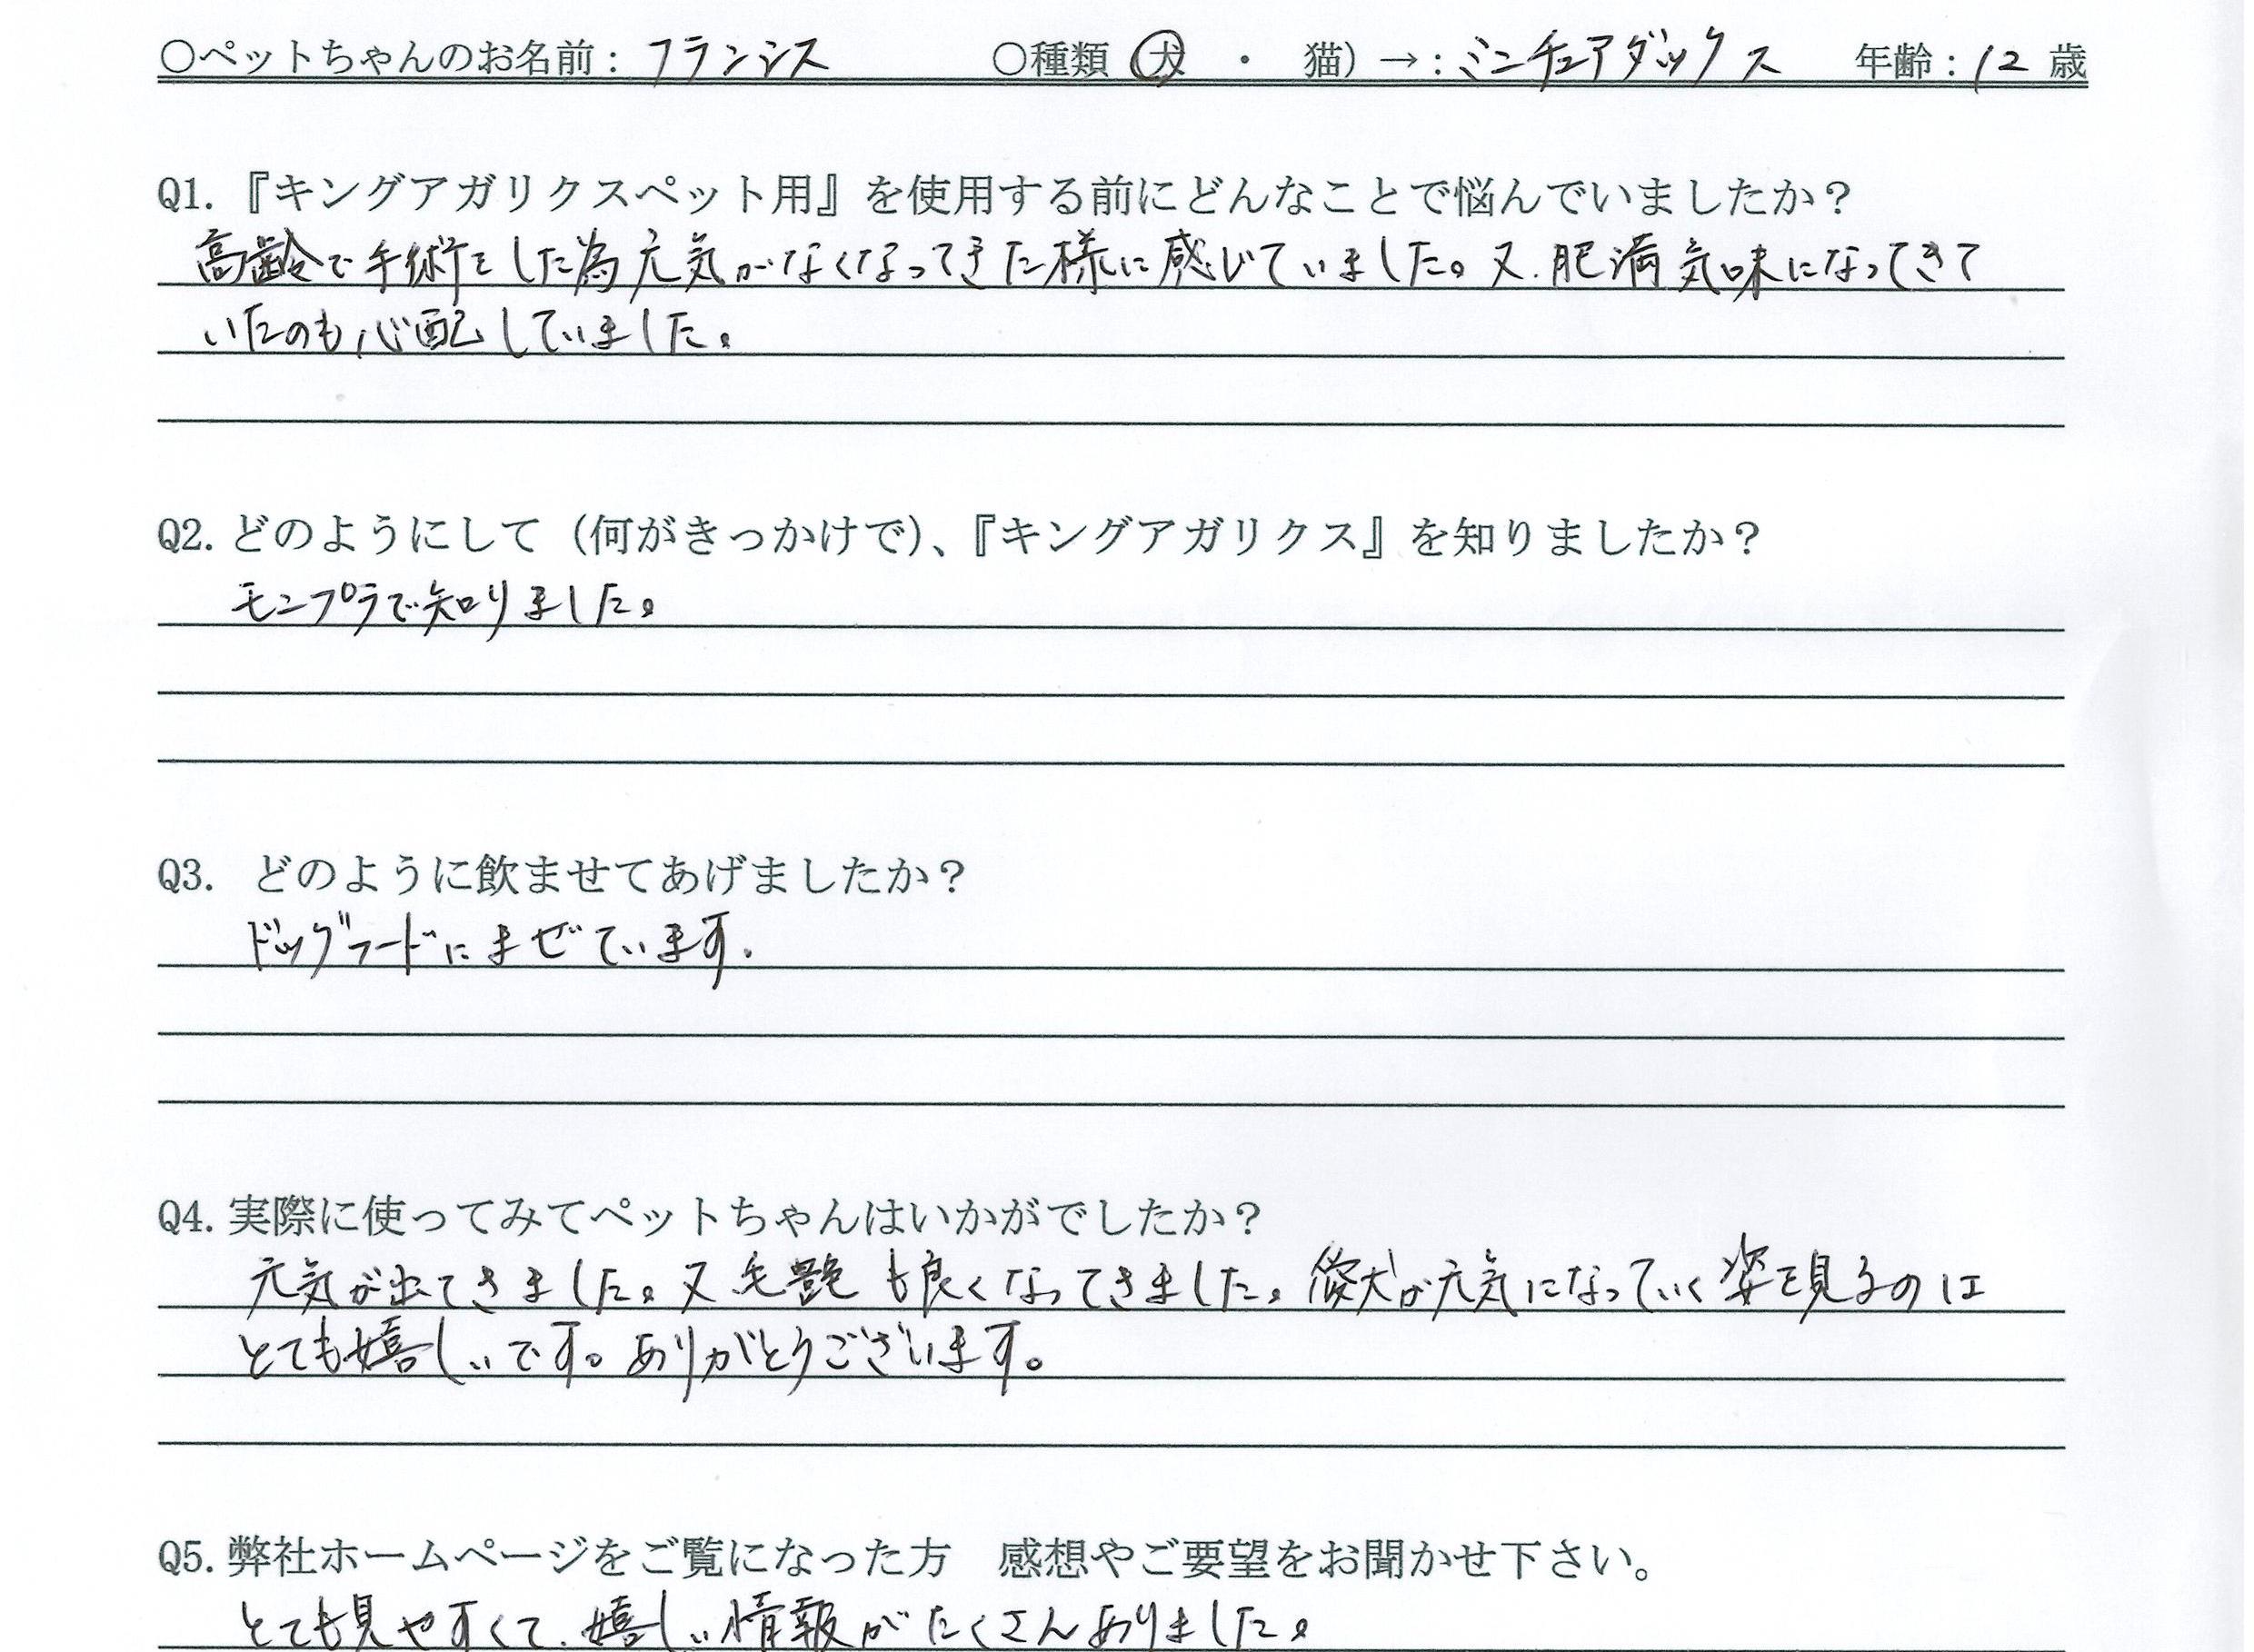 ○ペットちゃんのお名前：フランシス　○種類（犬・猫）→：ミニチュアダックス　年齢：12歳
Q1.『キングアガリクスペット用』を使用する前にどんなことで悩んでいましたか？
高齢で手術をした為元気がなくなってきた様に感じていました。又、肥満気味になってきて
いたのも心配していました。
Q2.どのようにして（何がきっかけで）、『キングアガリクス』を知りましたか？
モニプラで知りました。
Q3.　どのように飲ませてあげましたか？
ドッグフードにまぜています.
Q4.実際に使ってみてペットちゃんはいかがでしたか？
元気が出てきました。又毛艶も良くなってきました。愛犬が元気になっていく姿を見るのは
とても嬉しいです。ありがとうございます。
Q5.弊社ホームページをご覧になった方　感想やご要望をお聞かせ下さい。
とても見やすくて、嬉しい情報がたくさんありました。